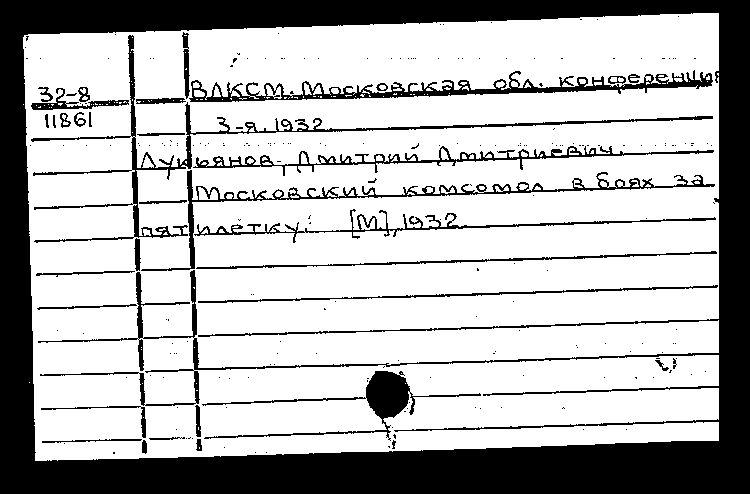 32-8 ВЛКСМ. Московская обл. конференция
11861 3-я. 1932.
Лукьянов, Дмитрий Дмитриевич.
Московский комсомол в боях за
пятилетку. [М], 1932.